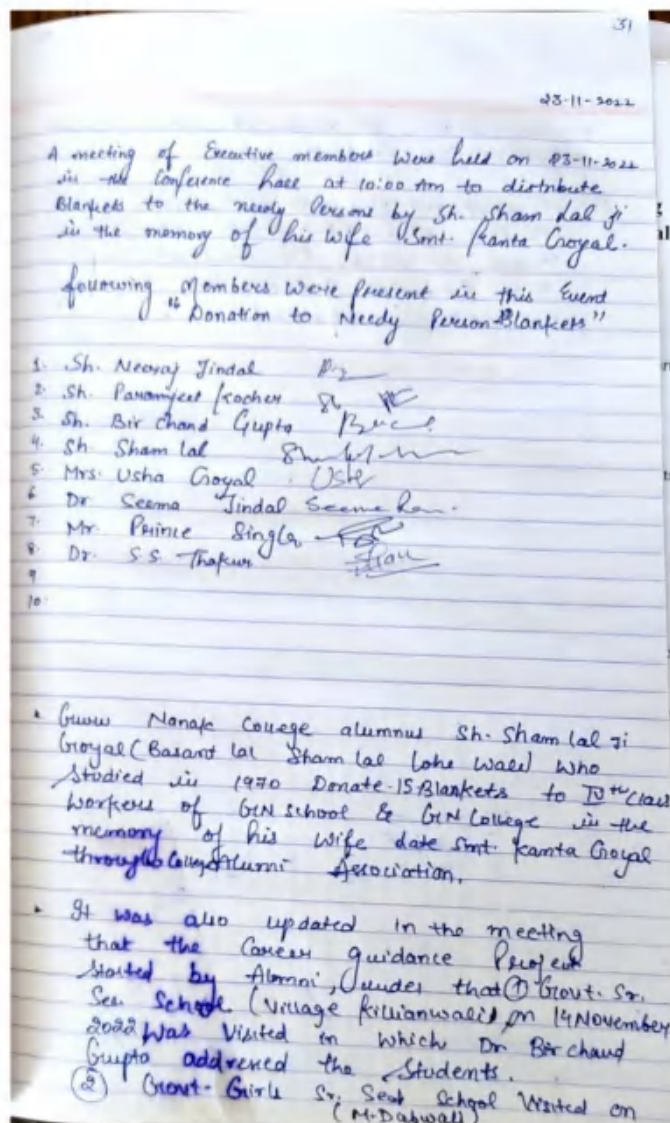 31
23-11-2022
A meeting of Executive members were held on 23-11-2022
in the Conference hall at 10:00 Am to distribute
Blankets to the needy Persons by Sh. Sham Lal ji
in the memory of his wife Smt. Kanta Goyal.
following Members were Present in this Event
"Donation to Needy Person Blankets"
1. Sh. Neeraj Jindal
2. Sh. Paramjeet Kocher
3. Sh. Bir Chand Gupta
4. Sh. Sham lal
5. Mrs. Usha Goyal Usha
6 Dr Seema Jindal Seema
7. Mr. Prince Singla
8. Dr. S.S. Thakur
9
10.
• Guru Nanak College alumnus Sh. Sham lal Ji
Goyal (Basant lal Sham lal Lohe Wale) who
Studied in 1970 Donate 15 Blankets to IVth Class
workers of GN School & GN College in the
memory of his wife date Smt. Kanta Goyal
through College Alumni Association.
• It was also updated in the meeting
that the Career guidance Project
started by Alumni, under that ① Govt. Sr.
Sec School (Village Killianwali) on 14 November
2022 was visited in which Dr Bir chand
Gupta addressed the Students.
② Govt. Girls Sr. Sec School Visited on
(M. Dabwali)